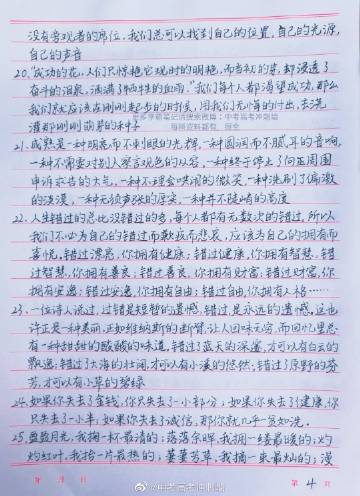 没有旁观者的席位,我们总可以找到自己的位置,自己的光源,
自己的声音
20、"成功的花,人们只惊艳它现时的明艳,而当初的芽,却浸透了
奋斗的泪泉,洒满了牺牲的血雨。"我们每个人都渴望成功,那么
我们就应该在刚刚起步的时候,用我们无悔的汗血,去浇
灌那刚刚萌芽的种子
21、成熟是一种明亮而不刺眼的光辉,一种圆润而不腻耳的音响,
一种不需要对别人察言观色的从容,一种终于停止了向周围
申诉求告的大气,一种不理会哄闹的微笑,一种洗刷了偏激
的淡漠,一种无须声张的厚实,一种并不陡峭的高度
22、人生错过的总比没错过的多,每个人都有无数次的错过,所以
我们不必为自己的错过而歉疚而悲哀,应该为自己的拥有而
喜悦,错过漂亮,你拥有健康;错过健康,你拥有智慧,错
过智慧,你拥有善良;错过善良,你拥有财富;错过财富,你
拥有安逸;错过安逸,你拥有自由;错过自由,你拥有人格……
23、一位诗人说过,过错是短暂的遗憾,错过是永远的遗憾,这也
许正是一种美丽,正如维纳斯的断臂,让人回味无穷,而回忆里总
有一种甜甜的酸酸的味道,错过了蓝天的深邃,才可以有白云的
飘逸;错过了大海的壮阔,才可以有小溪的悠然;错过了原野的芬
芳,才可以有小草的碧绿
24、如果你失去了金钱,你只失去了一小部分;如果你失去了健康,你
只失去了一小半;如果你失去了诚信,那你就几乎一贫如洗。
25、盈盈月光,我掬一杯最清的;落落余晖,我拥一缕最暖的;灼
灼红叶,我拾一片最热的;萋萋芳草,我摘一束最灿的;漫
第 4 页
@中考高考冲刺站